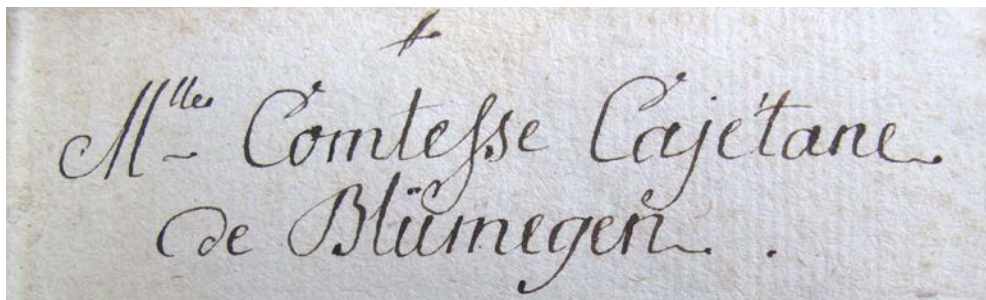 Mlle Comtesse Cajétane
de Blümegen .